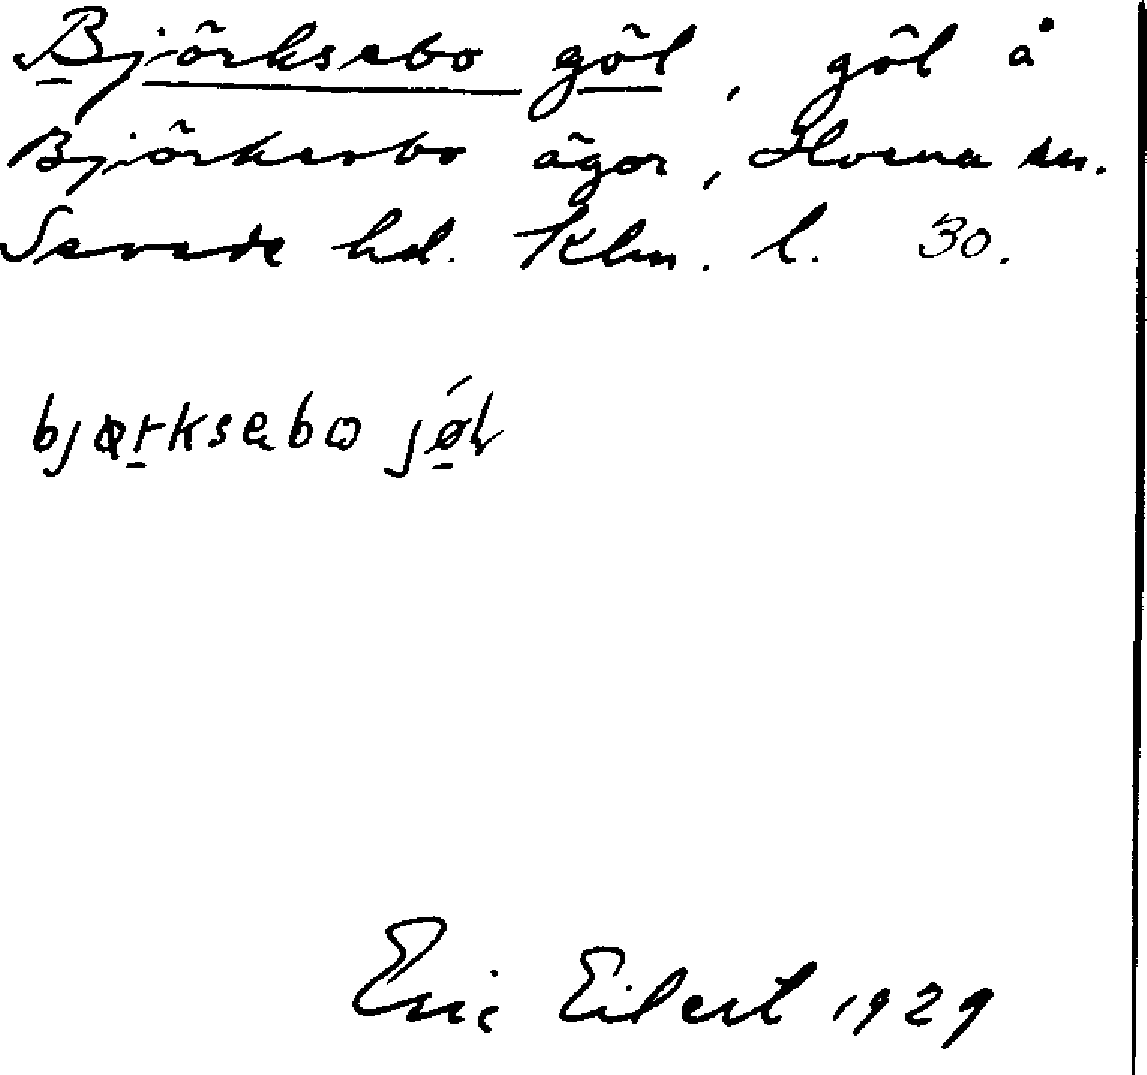 Björksebo göl, göl å
Björkesbo ägor, Hvena sn.
Sevede hd. Klm. l. 30.
bjørksebo jǿl
Eric Eilert 1929